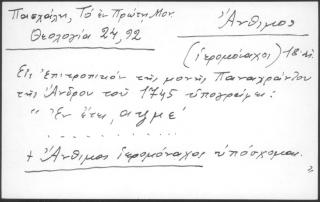 Πασχάλη, Τό ἐν Πρώτῃ Μον.
Θεολογία 24, 92
Ἄνθιμος
(ἱερομόναχος) 18 αἰ.
Εἰς ἐπιτροπικόν τῆς μονῆς Παναχράντου
τῆς Ἄνδρου τοῦ 1745 ὑπογράφει:
"Ἐν ἔτει, αψμέ
. . . . . . . . . . .
+ Ἄνθιμος ἱερομόναχος ὑπόσχομαι.